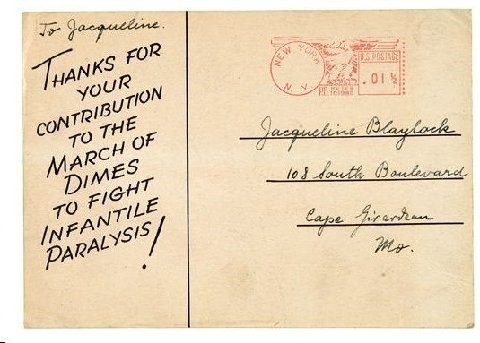 To Jacqueline.
THANKS FOR
YOUR
CONTRIBUTION
TO THE
MARCH OF
DIMES
TO FIGHT
INFANTILE
PARALYSIS!
NEW YORK
N.Y.
U.S. POSTAGE
.01½
Jacqueline Blaylock
108 South Boulevard
Cape Girardeau
Mo.